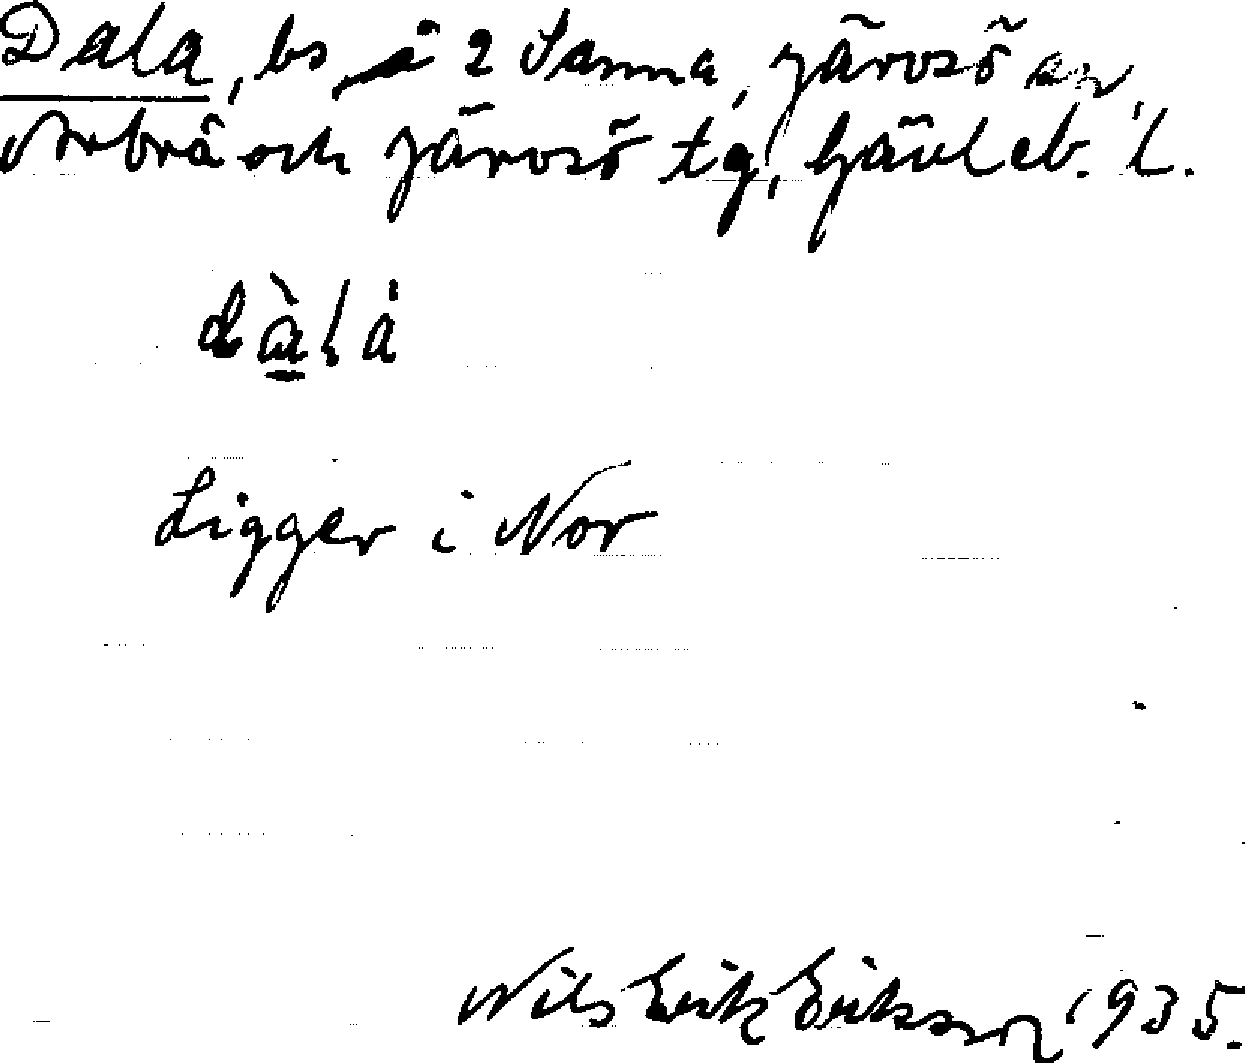 Dala, bs å 2 Sanna, Järvsö sn,
Arbrå och Järvsö tg, Gävleb. l.
dàlå
Ligger i Nor
Nils Erik Eriksson 1935.